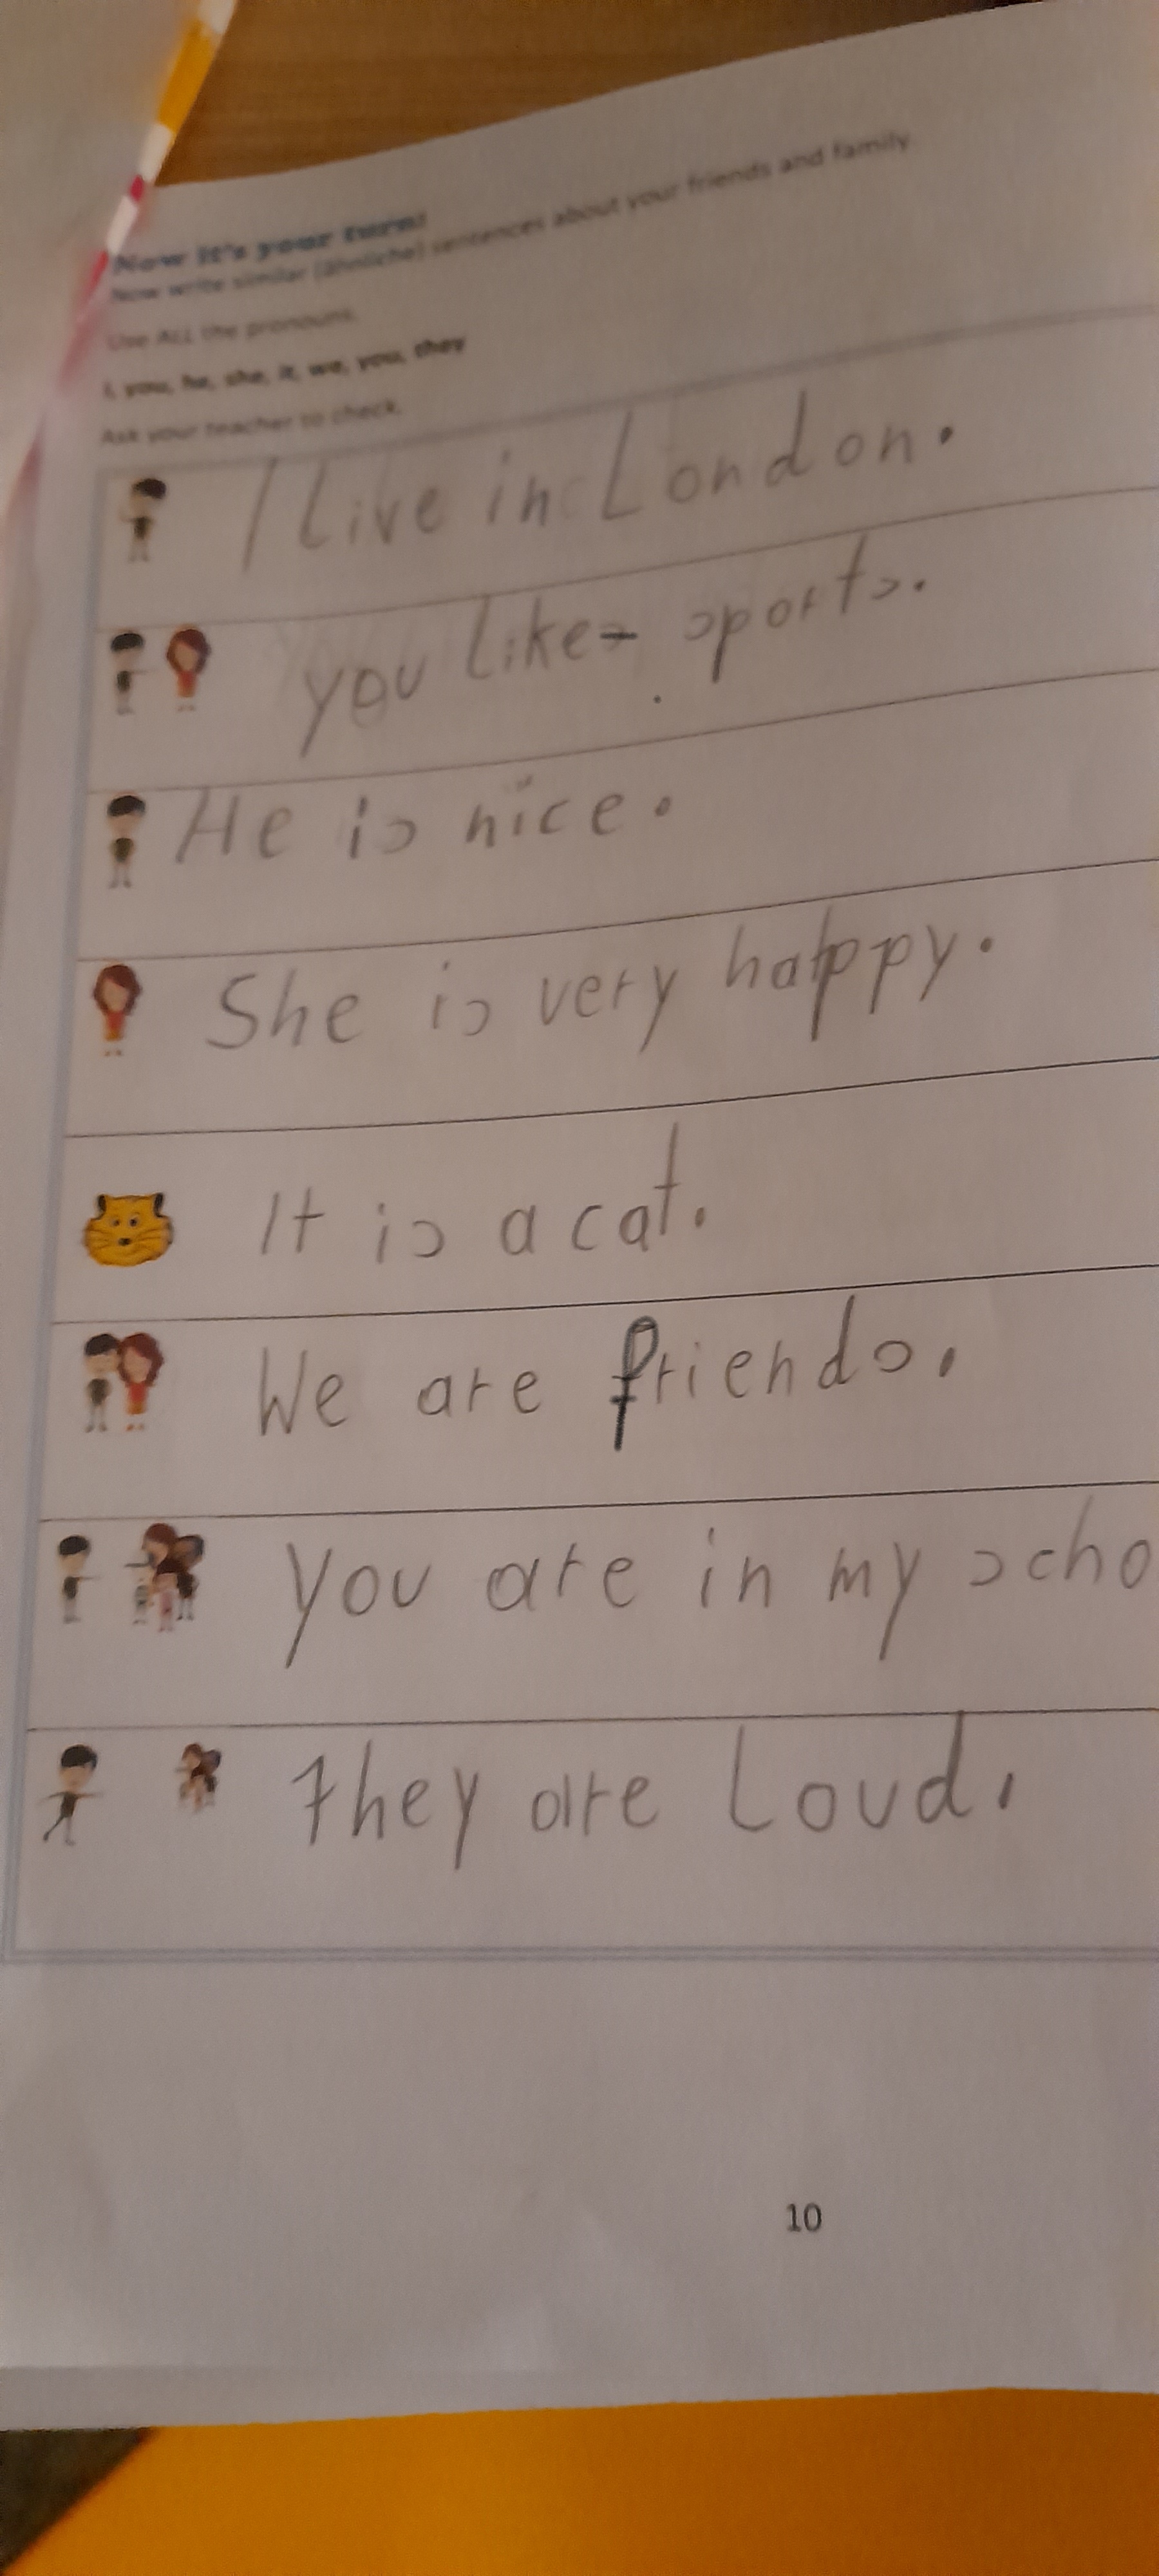 Now it's your turn!
Now write similar (ähnliche) sentences about your friends and family
Use ALL the pronouns.
I, you, he, she, it, we, you, they
Ask your teacher to check.
I Live in London.
you like sports.
He is nice.
She is very happy.
It is a cat.
We are friends.
you are in my scho
They are Loud.
10